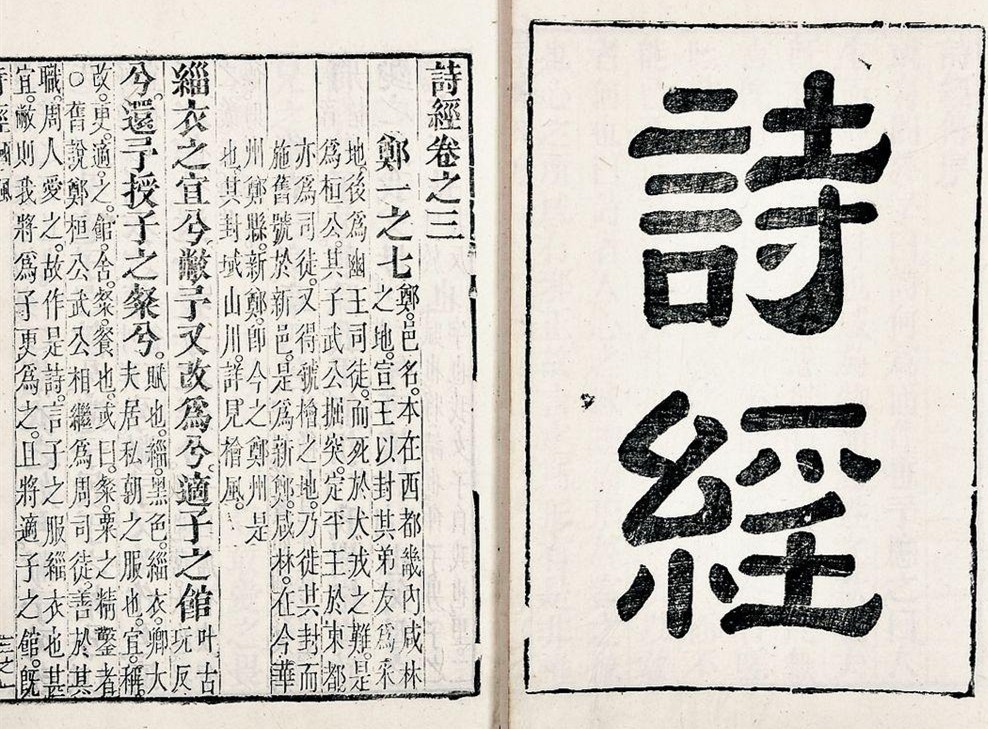 詩經
詩經卷之三
鄭一之七
鄭。邑名。本在西都畿內咸林
之地。宣王以封其弟友爲采
地後爲幽王司徒。而死於犬戎之難。是
爲桓公。其子武公掘突。定平王於東都
亦爲司徒。又得虢檜之地。乃徙其封而
施舊號於新邑。是爲新鄭。咸林。在今華
州鄭縣。新鄭。卽今之鄭州。是
也。其封域山川。詳見檜風。
緇衣之宜兮敝予又改爲兮。適子之館
叶古
玩反
兮。還予授子之粲兮。
賦也。緇。黑色。緇衣。卿大
夫居私朝之服也。宜。稱。
改。更。適。之。館。舍。粲。餐也。或曰。粲。粟之精鑿者
○舊說鄭桓公武公相繼爲周司徒。善於其
職。周人愛之。故作是詩。言子之服緇衣也甚
宜。敝則我將爲子更爲之。且將適子之館。旣